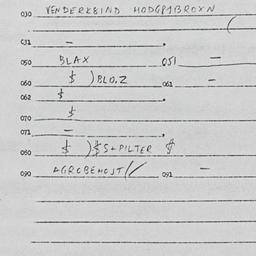 030 VENDERKBIND HODGP1BROXN
031 -
050 BLAX 051 -
060 $ ) BLO,Z 061 -
062 $
070 $
071 -
080 $ )$S+PILTER $
090 AGROBEHOJT// 091 -